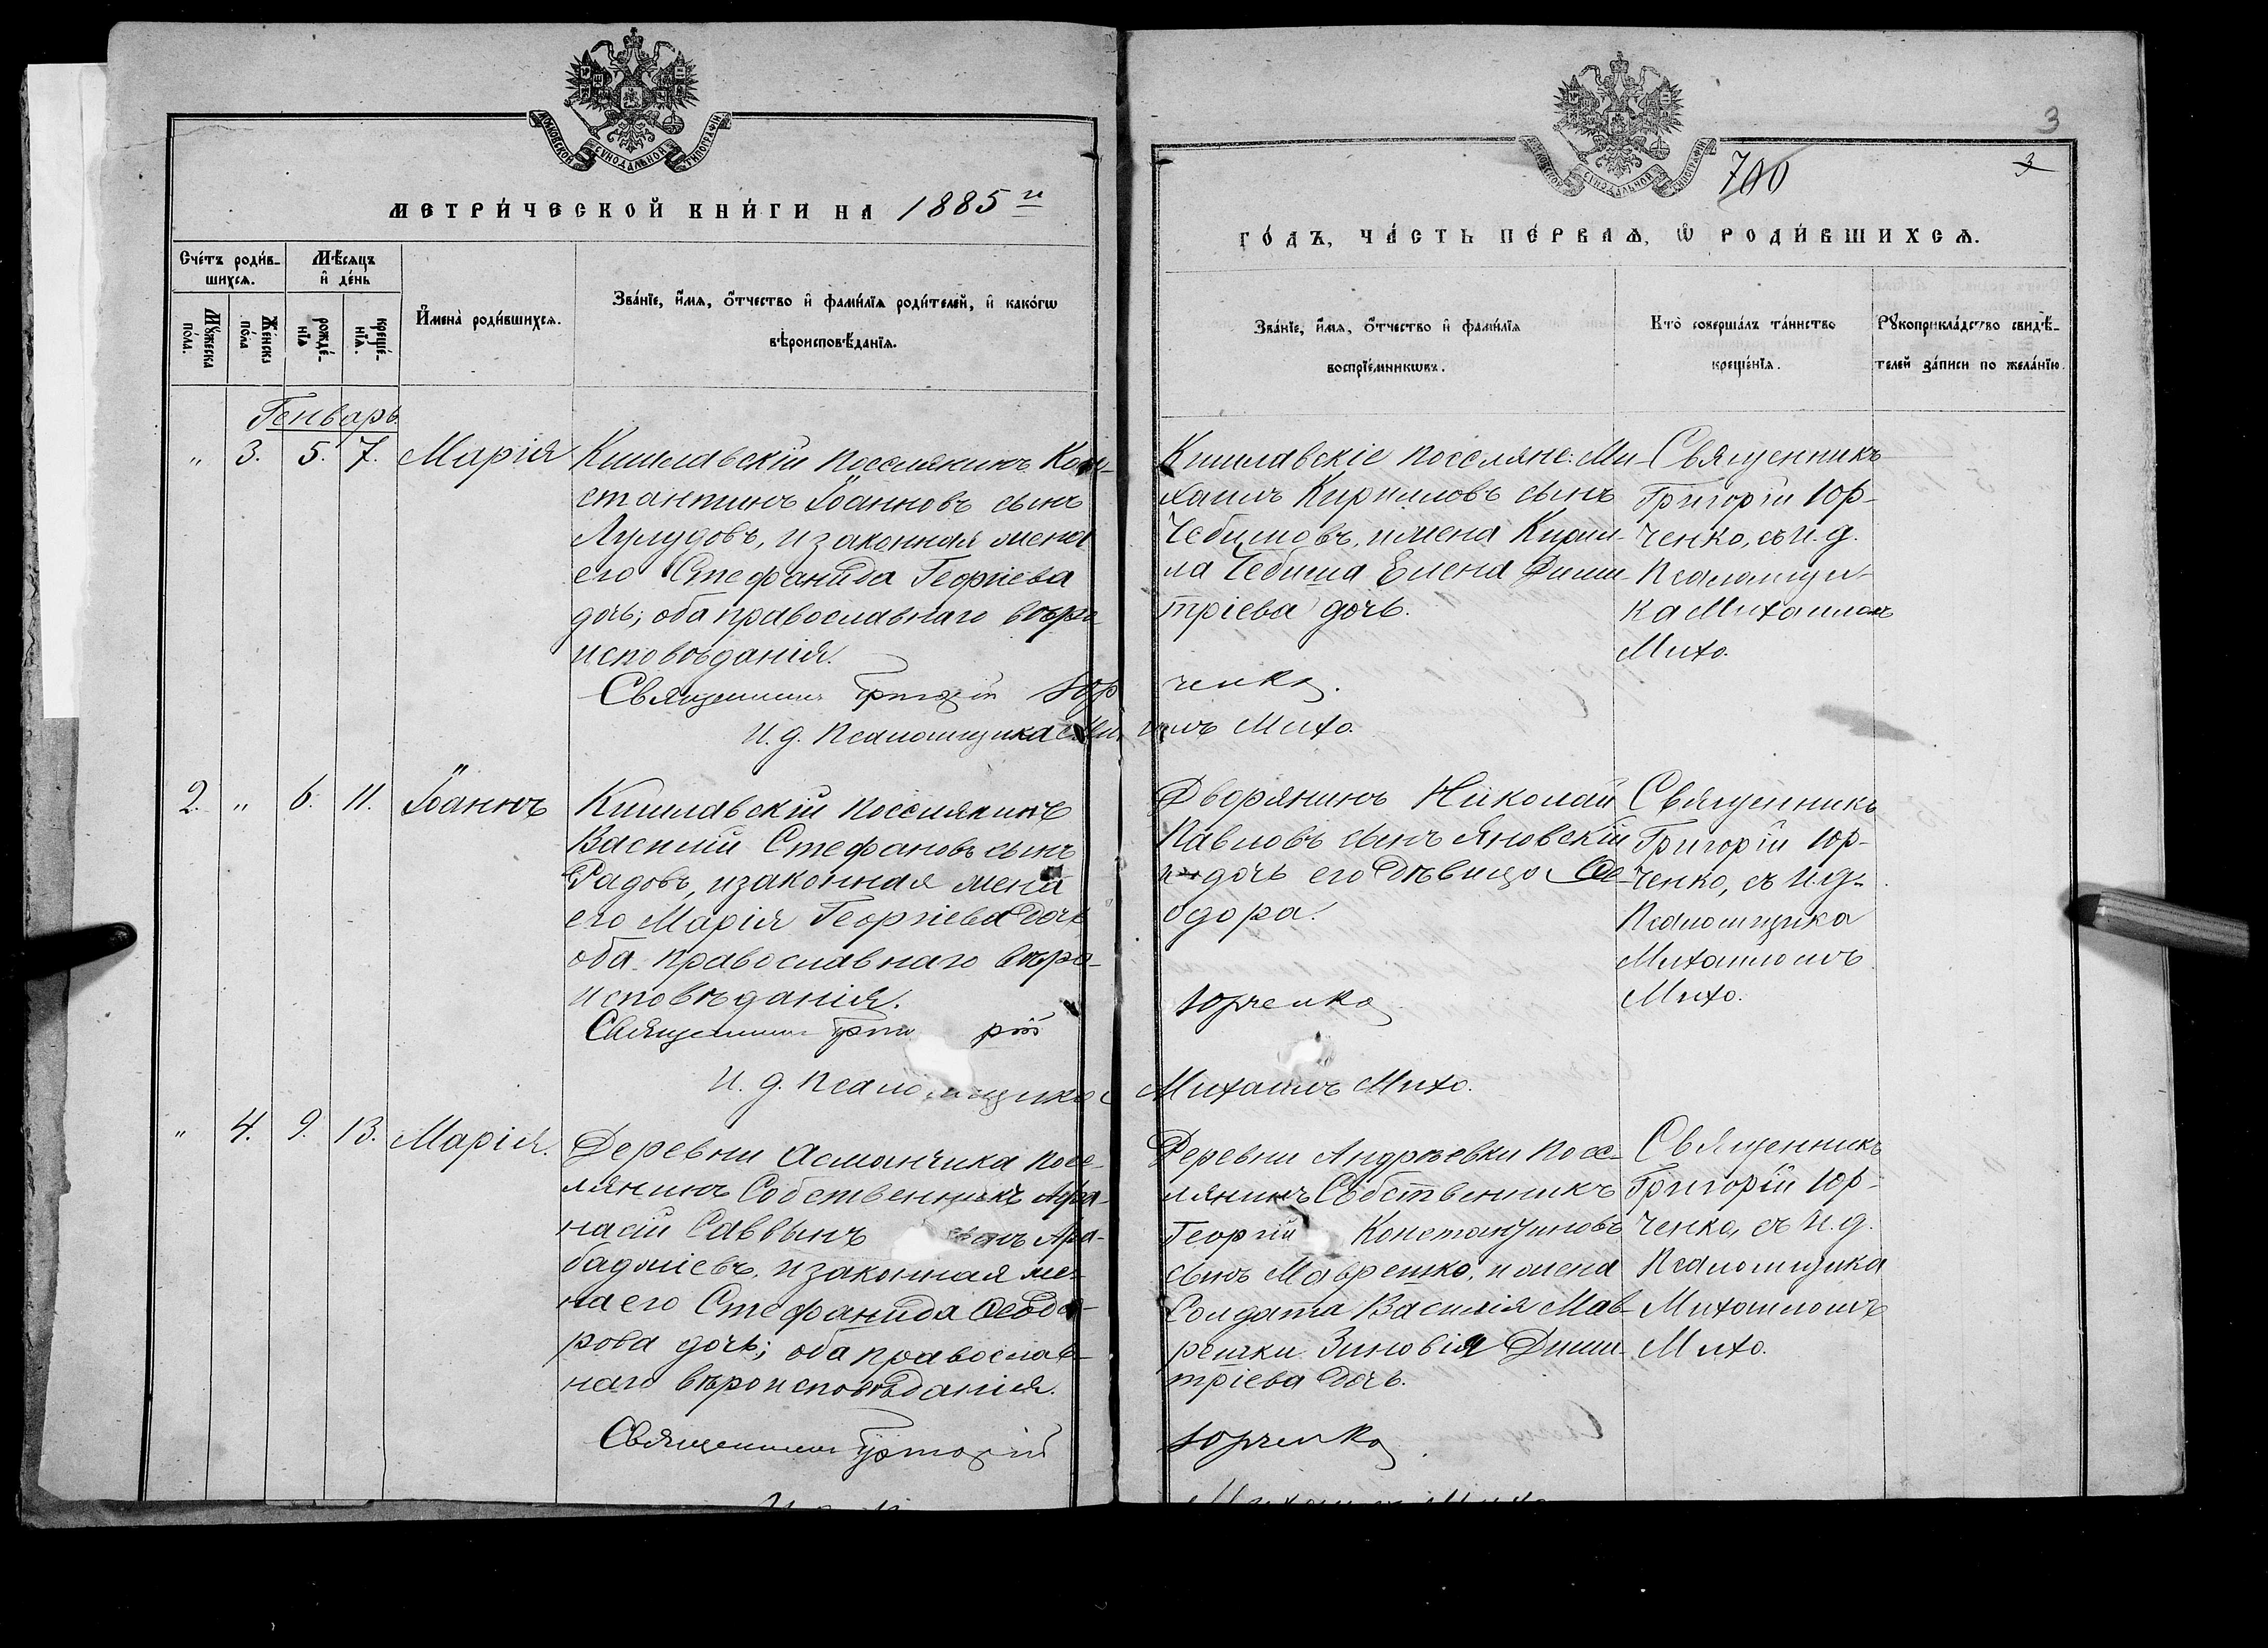 МОСКОВСКОЙ СѴНОДАЛЬНОЙ ТИПОГРАФІИ
МЕТРИ́ЧЕСКОЙ КНИ́ГИ НА 1885 й
Сче́тъ роди́в-
шихсѧ.
Мѣ́сяцъ
и҆ де́нь
Мꙋ́жеска
по́ла.
Же́нска
по́ла
рожде́-
нїѧ
креще́-
нїѧ.
И҆мена̀ роди́вшихсѧ.
Зва́нїе, и҆́мѧ, ѻ҆́тчество и҆ фами́лїѧ роди́телей, и҆ како́гѡ
вѣроисповѣ́данїѧ.
Генварь
" 3. 5. 7. Марія
Кишлавскій поселянинъ Кон-
стантинъ Іоанновъ сынъ
Лулудовъ, и законная жена
его Стефанида Георгіева
дочь; оба православнаго вѣро
исповѣданія.
Священникъ Григорій Юр
И. д. Псаломщика Ми
2. " 6. 11. Іоаннъ
Кишлавскій поселянинъ
Василій Стефановъ сынъ
Радовъ, и законная жена
его Марія Георгіева дочь
оба православнаго вѣро-
исповѣданія.
Священникъ Григо рій
И. д. Псаломщика
" 4. 9. 13. Марія.
Деревни Асманчика посе-
лянинъ Собственникъ Афа-
насій Саввинъ сынъ Ара-
баджіевъ, и законная же-
на его Стефанида Ѳеодо-
рова дочь; оба православ-
наго вѣроисповѣданія.
Священникъ Григорій
3
3
МОСКОВСКОЙ СѴНОДАЛЬНОЙ ТИПОГРАФІИ
700
ГО́ДЪ, ЧА́СТЬ ПЕ́РВАѦ, Ѡ҆ РОДИ́ВШИХСѦ.
Зва́нїе, и҆́мѧ, ѻ҆́тчество и҆ фами́лїѧ
воспрїе́мникѡвъ.
Кто̀ соверша́лъ та́инство
креще́нїѧ.
Рꙋкоприкла́дство свидѣ́-
телей за́писи по жела́нїю.
Кишлавскіе поселяне: Ми-
хаилъ Кирилловъ сынъ
Чебишовъ, и жена Кирил-
ла Чебиша Елена Дими-
тріева дочь.
Священникъ
Григорій Юр-
ченко, съ И. д.
Псаломщи-
ка Михаиломъ
Михо.
ченко.
илъ Михо.
Дворянинъ Николай
Павловъ сынъ Яновскій
и дочь его дѣвица Ѳе-
одора.
Священникъ
Григорій Юр-
ченко, съ И. д.
Псаломщика
Михаиломъ
Михо.
Юрченко
Михаилъ Михо.
Деревни Андреевки посе-
лянинъ Собственникъ
Георгій Константиновъ
сынъ Маврешко, и жена
Солдата Василія Мав-
решки Зиновія Дими-
тріева дочь.
Священникъ
Григорій Юр-
ченко, съ И. д.
Псаломщика
Михаиломъ
Михо.
Юрченко
Михаилъ Михо